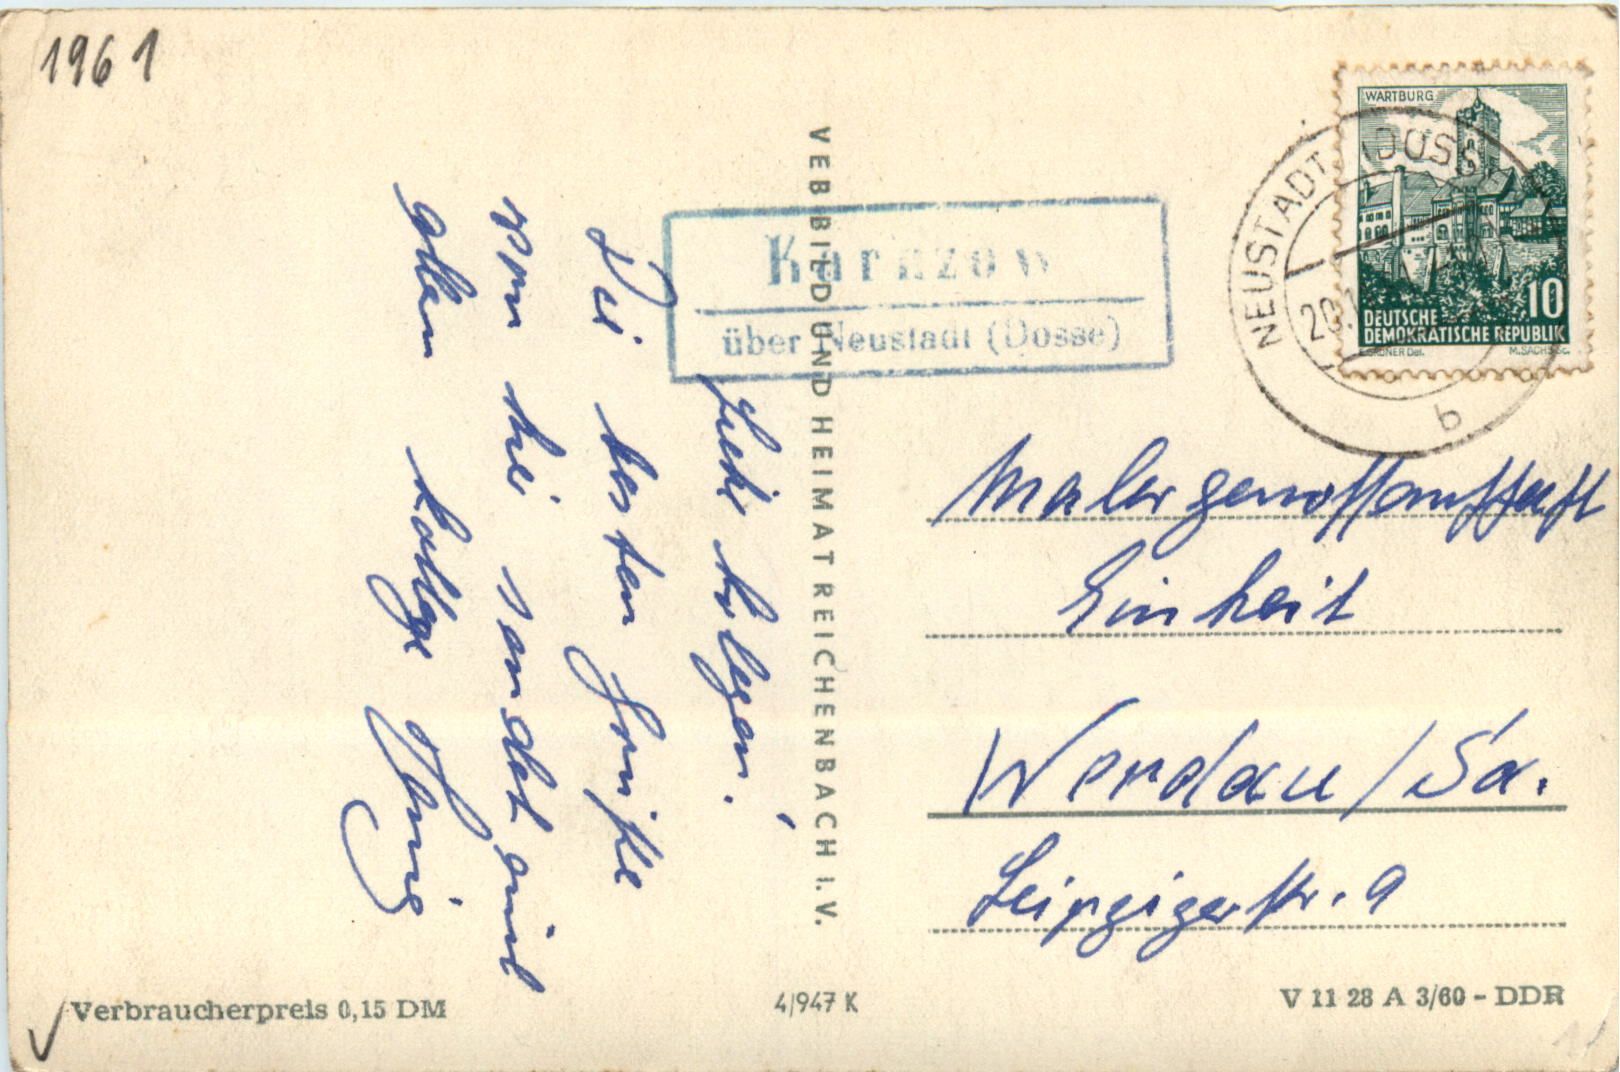 1961
WARTBURG
10
DEUTSCHE
DEMOKRATISCHE REPUBLIK
M.SACHS Sc.
NEUSTADT (DOSSE)
20.1
b
über Neustadt (Dosse)
VEB BILD UND HEIMAT REICHENBACH I. V.
Liebe Kollegen!
Die besten Grüße
von hier sendet
allen Kollege
Malergenossenschaft
Einheit
Werdau / Sa.
Leipzigerstr. 9
Verbraucherpreis 0,15 DM
4/947 K
V 11 28 A 3/60 - DDR